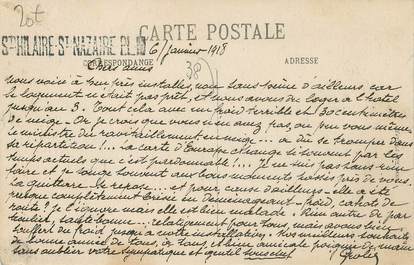 20f
CARTE POSTALE
6 Janvier 1918
St HILAIRE-St NAZAIRE Pl.
CORRESPONDANCE
ADRESSE
38
Chers amis
nous voici à peu près installés, non sans peine d'ailleurs car
le logement n'était pas prêt, et nous avons dû loger à l'hôtel
jusqu'au 3. Tout cela avec un froid terrible et 30 centimètres
de neige. Or je crois que vous n'en avez pas, ou peu vous même
le ministre du ravitaillement en neige... a dû se tromper dans
sa répartition!... La carte d'Europe change si souvent par les
temps actuels que c'est pardonnable!... Je ne suis pas sans rien
faire et je songe souvent aux bons moments passés près de vous
La guitterre se repose... et pour cause d'ailleurs - elle a été
presque complètement brisée en déménageant - froid, cahots de
route? je l'ignore mais elle est bien malade. Rien autre de par
ticulier, santé bonne... relativement pour tous, mais avons bien
souffert du froid jusqu'à notre installation. Nos meilleurs souhaits
de bonne année de tous, à tous, et bien amicale poignée de main
sans oublier votre sympathique et gentil